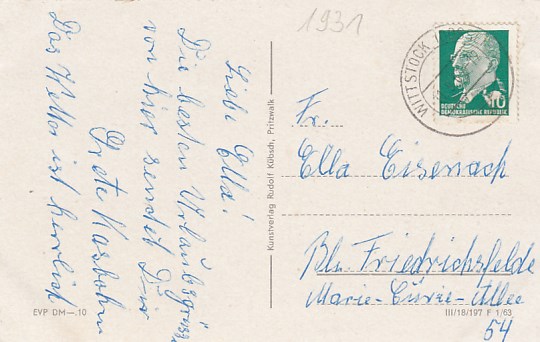 1931
Liebe
Ella!
Die besten Urlaubsgrüsse
von hier sendet Dir
Grete
Das Wetter ist herrlich
EVP DM –.10
Kunstverlag Rudolf Kübsch, Pritzwalk
WITTSTOCK
10
DEUTSCHE
DEMOKRATISCHE REPUBLIK
Fr.
Ella Eisenach
Bln. Friedrichsfelde
Marie-Cürie-Allee
54
III/18/197 F 1/63